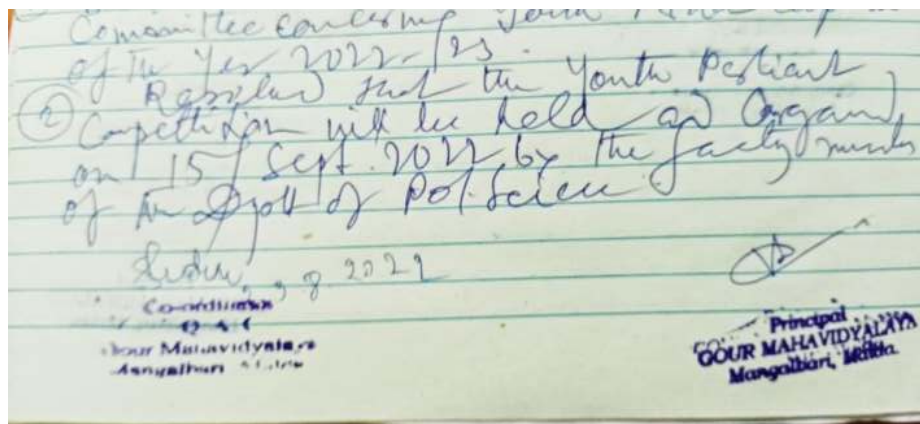 Committee concerning Youth
of the Year 2022-23.
② Resolved that the Youth Parliament
Competition will be held and Organised
on 15 Sept. 2022 by the faculty members
of the Deptt of Pol. Science
8.2022
Co-ordinator
IQAC
Gour Mahavidyalaya
Mangalbari Malda
Principal
GOUR MAHAVIDYALAYA
Mangalbari, Malda.